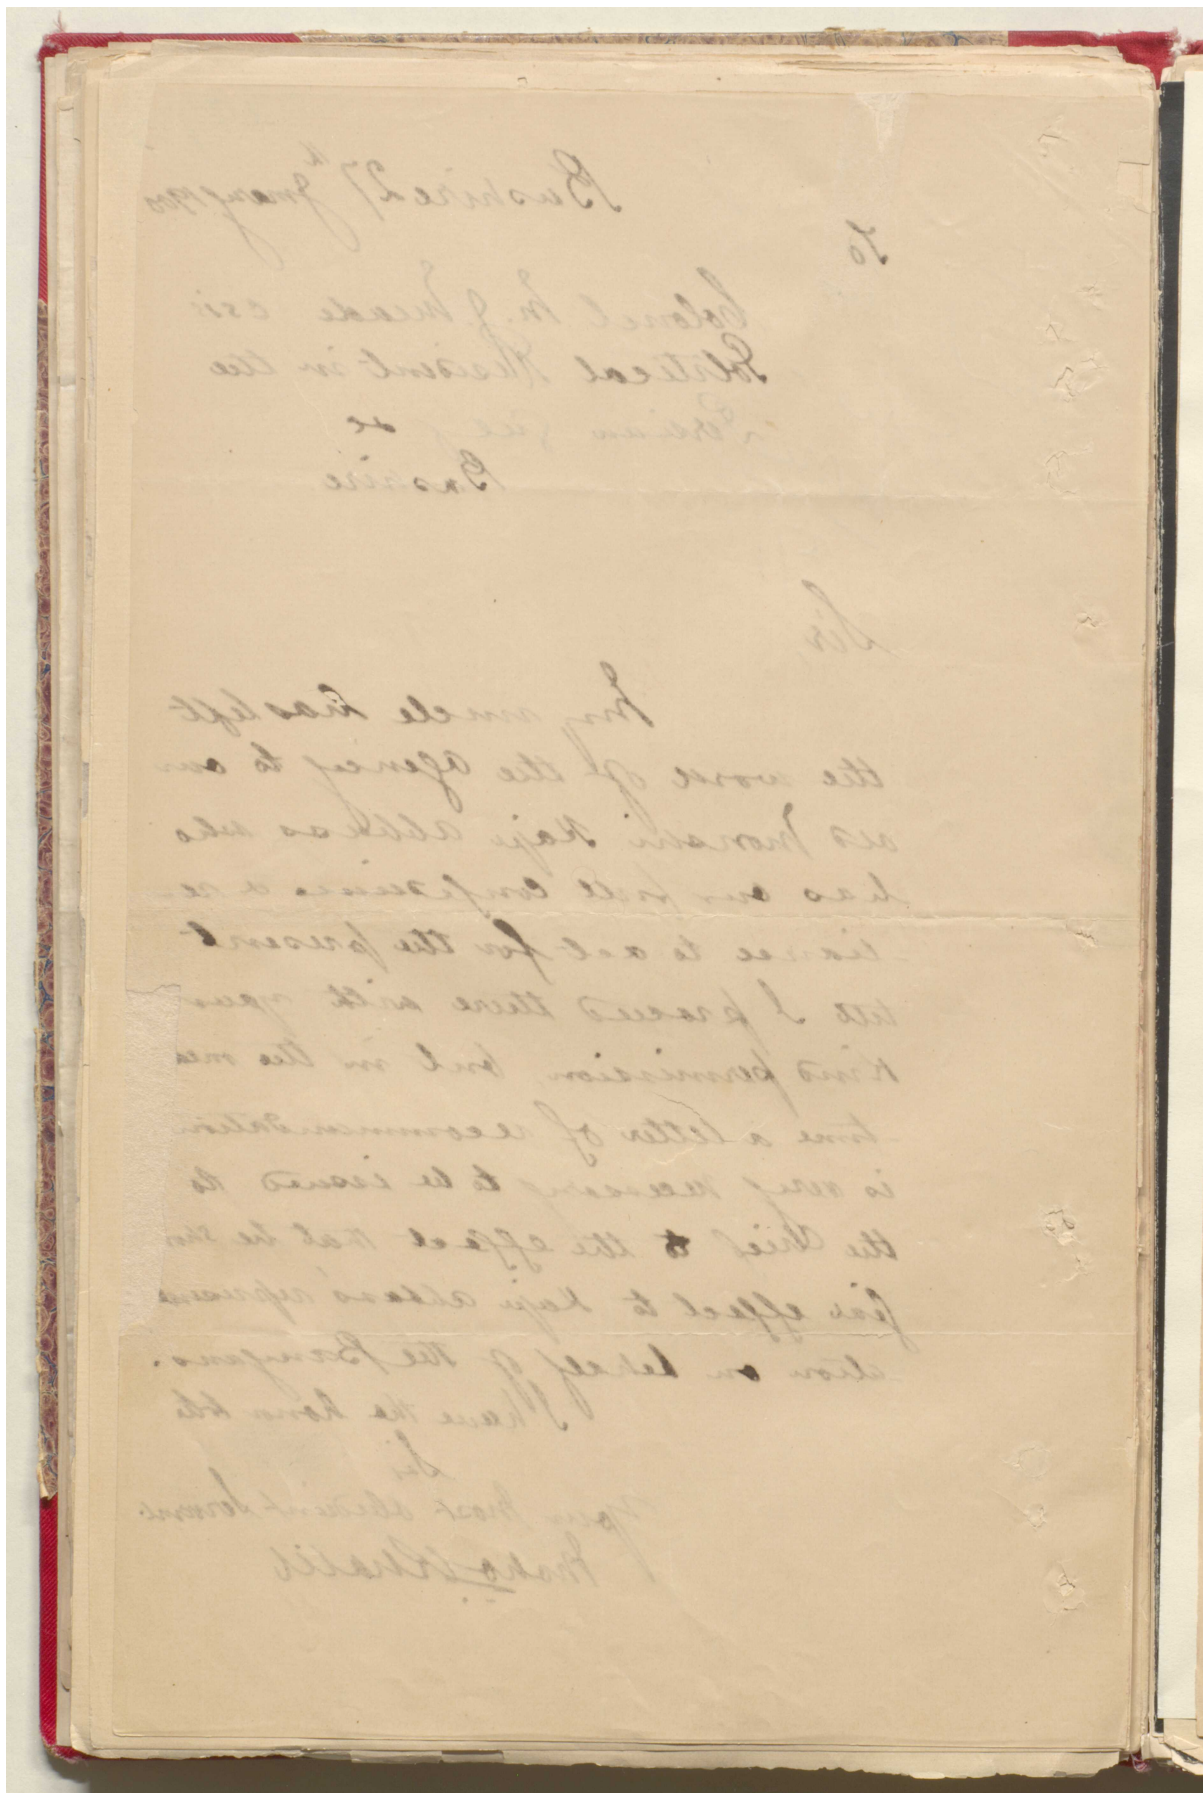 Bushire 27th January 1900
To
Colonel M. J. Meade CSI
Political Resident in the
Persian Gulf &c
Bushire
Sir,
My uncle has left
the work of the agency to our
old Monshi Haji Abbas who
has our full confidence & re-
-liance to act for the present
till I proceed there with your
kind permission, but in the mea
-time a letter of recommendation
is very necessary to be issued to
the Chief to the effect that he
give effect to Haji Abbas's
-ation on behalf of the Banyans.
I have the honor to be
Sir
Your most obedient Servant